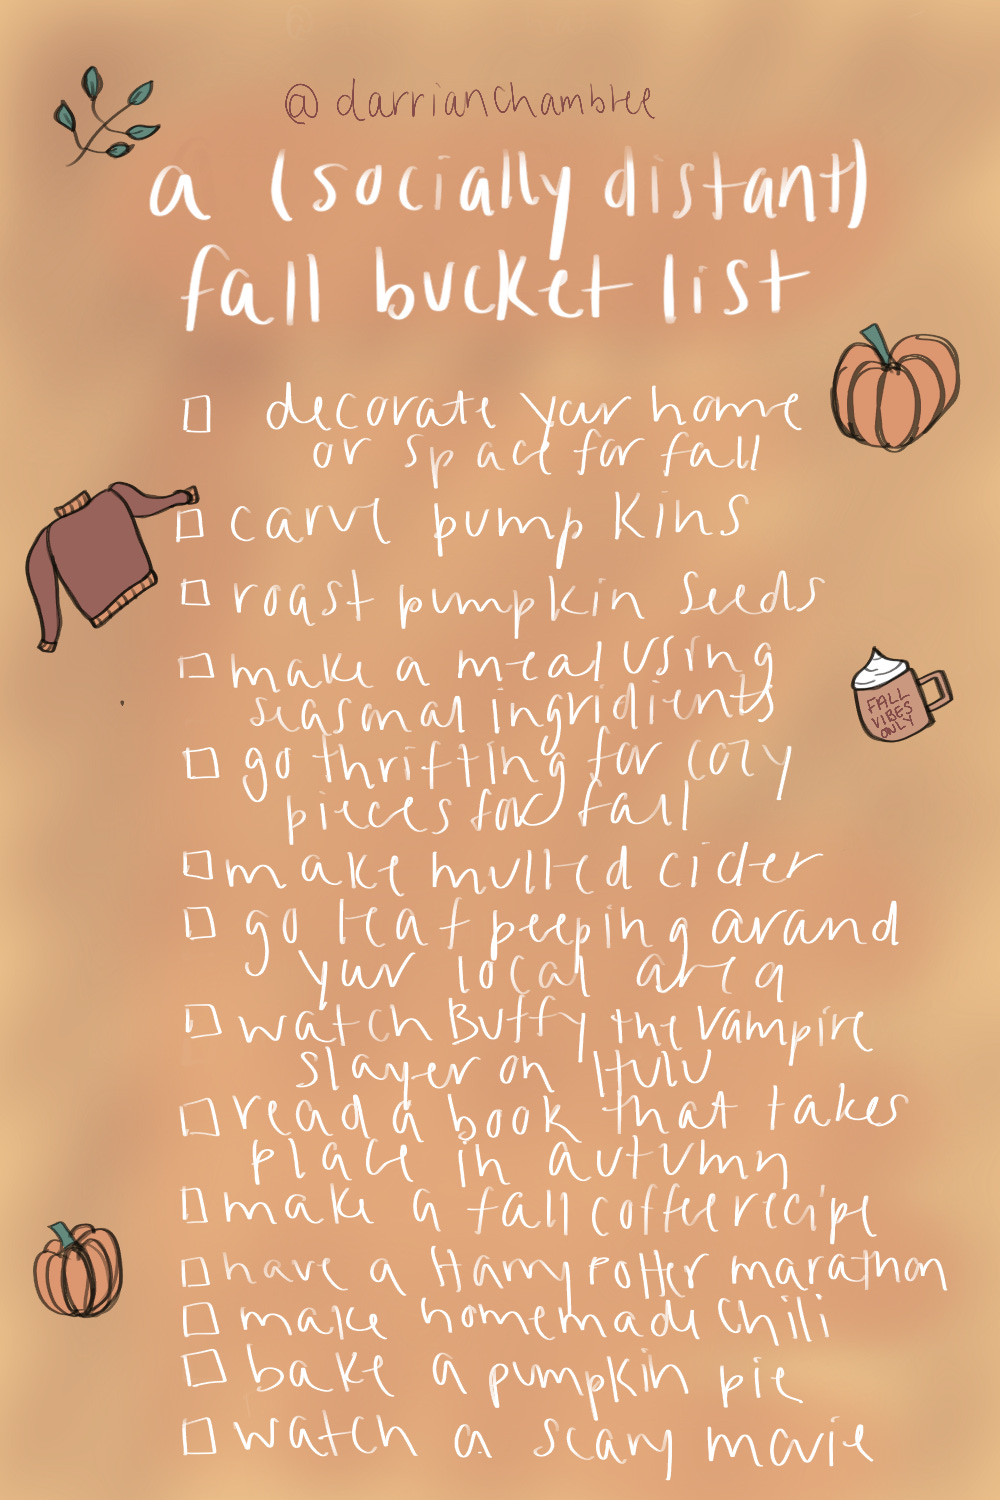 @darrianchamblee
a (socially distant)
fall bucket list
decorate your home
or space for fall
carve pumpkins
roast pumpkin seeds
make a meal using
seasonal ingridients
go thrifting for cozy
pieces for fall
make mulled cider
go leaf peeping around
your local area
watch Buffy the Vampire
slayer on Hulu
read a book that takes
place in autumn
make a fall coffee recipe
have a Harry Potter marathon
make homemade chili
bake a pumpkin pie
watch a scary movie
FALL
VIBES
ONLY